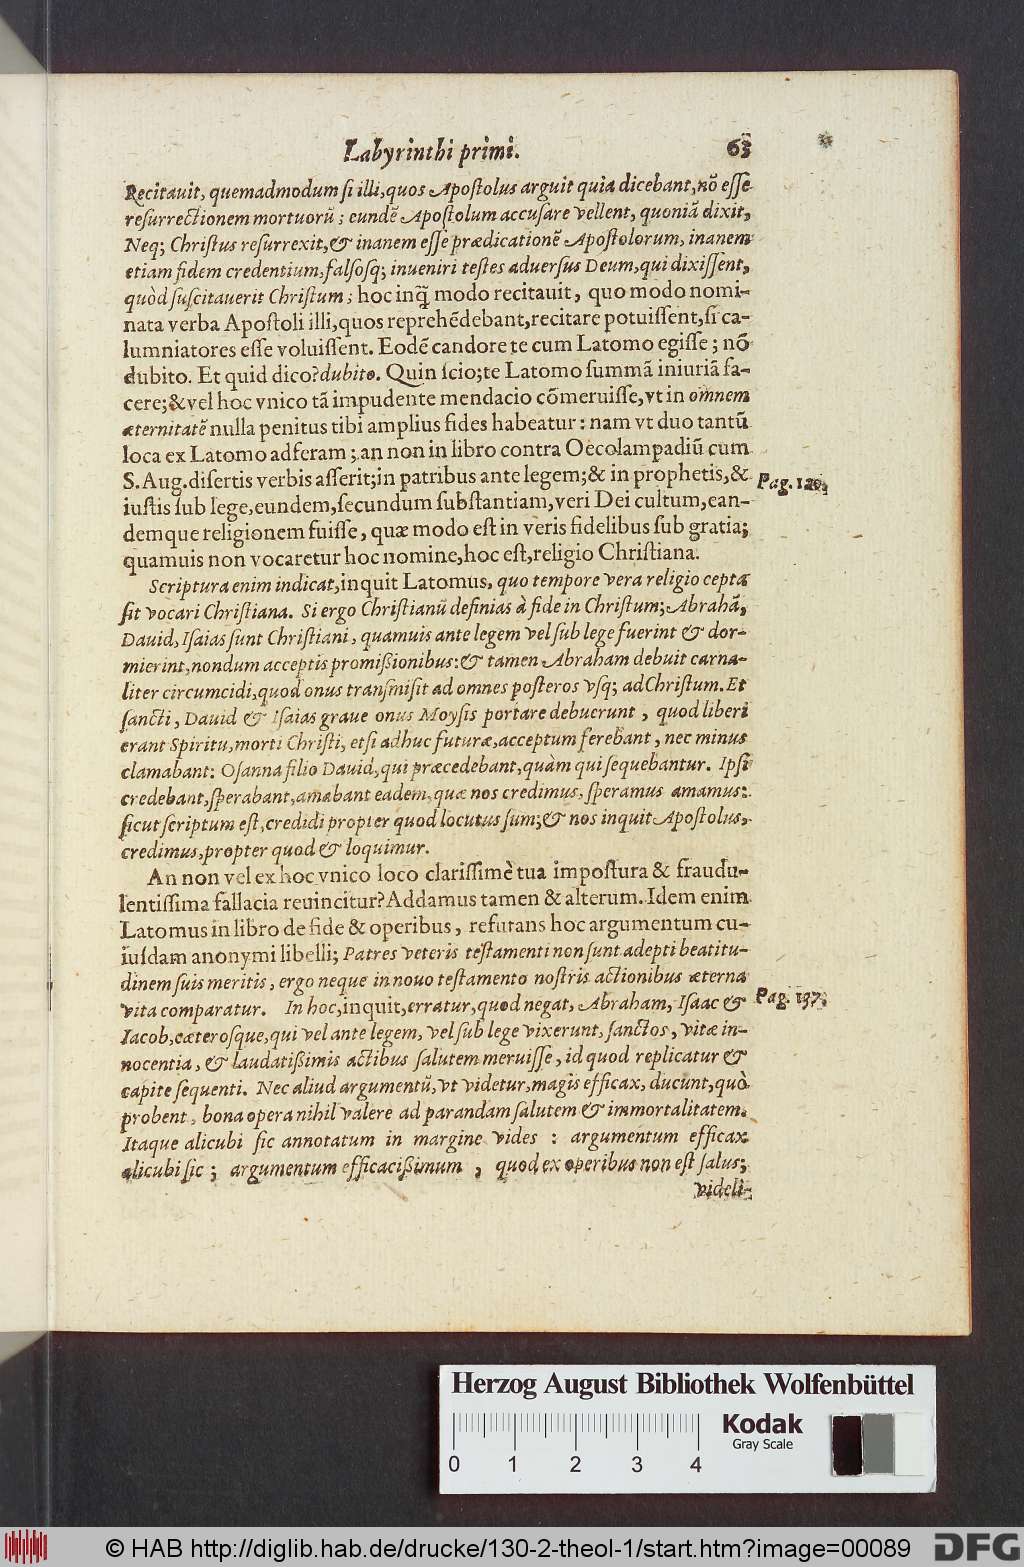 Labyrinthi primi. 63
Recitauit, quemadmodum si illi, quos Apostolus arguit quia dicebant, nō esse
resurrectionem mortuorū; eundē Apostolum accusare vellent, quoniā dixit,
Neq; Christus resurrexit, & inanem esse prædicationē Apostolorum, inanem
etiam fidem credentium, falsosq; inueniri testes aduersus Deum, qui dixissent,
quòd suscitauerit Christum; hoc inq̃ modo recitauit, quo modo nomi-
nata verba Apostoli illi, quos reprehēdebant, recitare potuissent, si ca-
lumniatores esse voluissent. Eodē candore te cum Latomo egisse; nō
dubito. Et quid dico? dubito. Quin scio; te Latomo summā iniuriā fa-
cere; & vel hoc vnico tā impudente mendacio cōmeruisse, vt in omnem
æternitatē nulla penitus tibi amplius fides habeatur: nam vt duo tantū
loca ex Latomo adferam; an non in libro contra Oecolampadiū cum
S. Aug. disertis verbis asserit; in patribus ante legem; & in prophetis, &
iustis sub lege, eundem, secundum substantiam, veri Dei cultum, ean-
demque religionem fuisse, quæ modo est in veris fidelibus sub gratia;
quamuis non vocaretur hoc nomine, hoc est, religio Christiana.
Pag. 120.
Scriptura enim indicat, inquit Latomus, quo tempore vera religio cepta
sit vocari Christiana. Si ergo Christianū definias à fide in Christum; Abrahā,
Dauid, Isaias sunt Christiani, quamuis ante legem vel sub lege fuerint & dor-
mierint, nondum acceptis promißionibus: & tamen Abraham debuit carna-
liter circumcidi, quod onus transmisit ad omnes posteros vsq; ad Christum. Et
sancti, Dauid & Isaias graue onus Moysis portare debuerunt, quod liberi
erant Spiritu, morti Christi, etsi adhuc futuræ, acceptum ferebant, nec minus
clamabant: Osanna filio Dauid, qui præcedebant, quàm qui sequebantur. Ipsi
credebant, sperabant, amabant eadem, quæ nos credimus, speramus amamus:
sicut scriptum est, credidi propter quod locutus sum; & nos inquit Apostolus,
credimus, propter quod & loquimur.
An non vel ex hoc vnico loco clarissimè tua impostura & fraudu-
lentissima fallacia reuincitur? Addamus tamen & alterum. Idem enim
Latomus in libro de fide & operibus, refutans hoc argumentum cu-
iusdam anonymi libelli; Patres veteris testamenti non sunt adepti beatitu-
dinem suis meritis, ergo neque in nouo testamento nostris actionibus æterna
vita comparatur. In hoc, inquit, erratur, quod negat, Abraham, Isaac &
Pag. 137.
Iacob, cæterosque, qui vel ante legem, vel sub lege vixerunt, sanctos, vitæ in-
nocentia, & laudatißimis actibus salutem meruisse, id quod replicatur &
capite sequenti. Nec aliud argumentū, vt videtur, magis efficax, ducunt, quò
probent, bona opera nihil valere ad parandam salutem & immortalitatem.
Itaque alicubi sic annotatum in margine vides: argumentum efficax
alicubi sic; argumentum efficacißimum, quod ex operibus non est salus;
videli-
Herzog August Bibliothek Wolfenbüttel
0 1 2 3 4
Kodak
Gray Scale
© HAB http://diglib.hab.de/drucke/130-2-theol-1/start.htm?image=00089
DFG